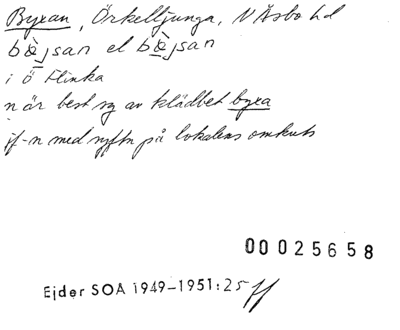 Byxan, Örkelljunga, N Åsbo hd
bæ̀jsan el bæ̀jsan
i ö Flinka
n är best sg av klädbet byxa
jf-n med syftn på lokalens omkrets
00025658
Ejder SOA 1949-1951:25 ff